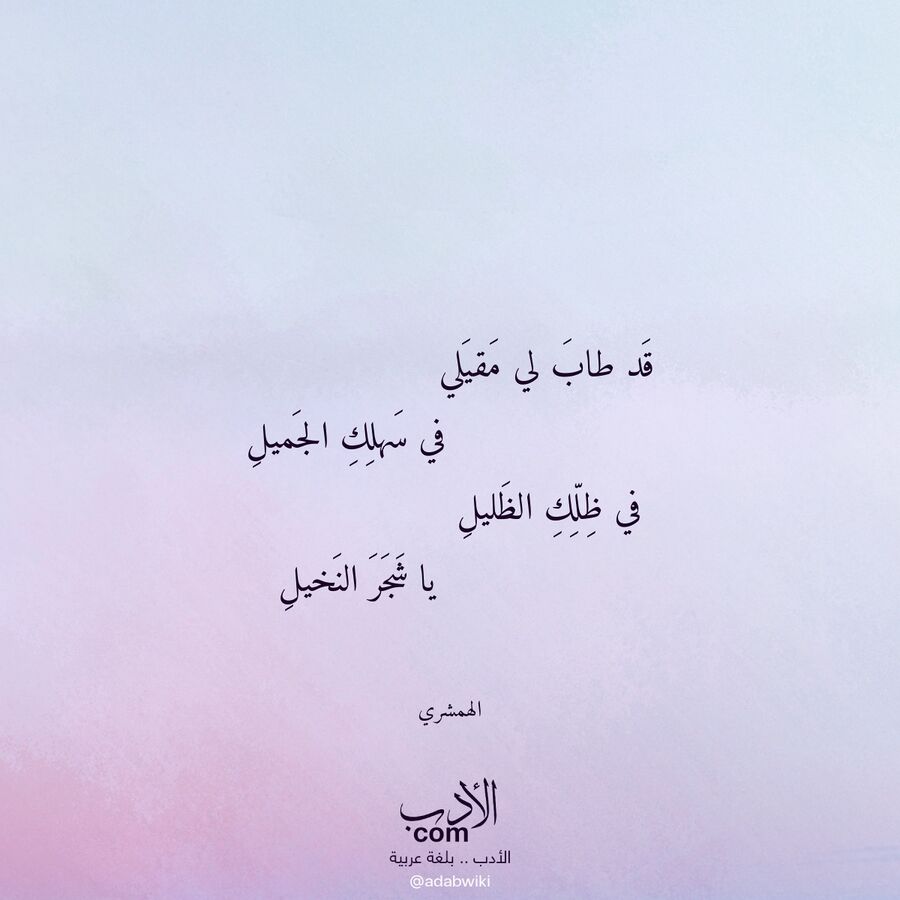 قَد طابَ لي مَقيَلي
في سَهلِكِ الجَميلِ
في ظِلِّكِ الظَليلِ
يا شَجَرَ النَخيلِ
الهمشري
الأدب
com
الأدب .. بلغة عربية
@adabwiki